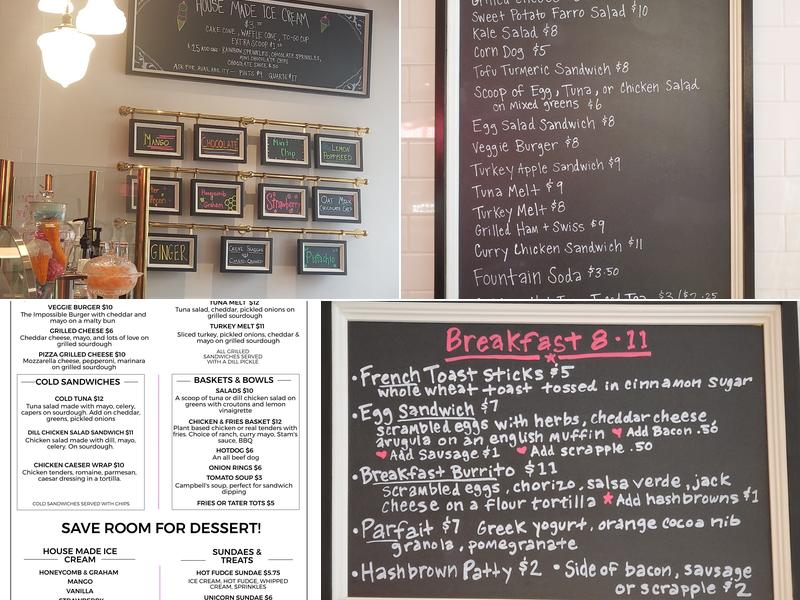 HOUSE MADE ICE CREAM
CAKE CONE, WAFFLE CONE, TO-GO CUP
EXTRA SCOOP
ADD ONS: RAINBOW SPRINKLES, CHOCOLATE SPRINKLES,
MINI CHOCOLATE CHIPS
CHOCOLATE SAUCE $.50
ASK FOR AVAILABILITY - PINTS $9 QUARTS $17
MANGO
CHOCOLATE
Mint
Chip
LEMON
POPPYSEED
Honeycomb
Graham
Strawberry
OAT MILK
CHOCOLATE CHIP
GINGER
Pistachio
Sweet Potato Farro Salad $10
Kale Salad $8
Corn Dog $5
Tofu Turmeric Sandwich $8
Scoop of Egg, Tuna, or Chicken Salad
on mixed greens $6
Egg Salad Sandwich $8
Veggie Burger $8
Turkey Apple Sandwich $9
Tuna Melt $9
Turkey Melt $8
Grilled Ham + Swiss $9
Curry Chicken Sandwich $11
Fountain Soda $3.50
VEGGIE BURGER $10
The Impossible Burger with cheddar and
mayo on a malty bun
GRILLED CHEESE $6
Cheddar cheese, mayo, and lots of love on
grilled sourdough
PIZZA GRILLED CHEESE $10
Mozzarella cheese, pepperoni, marinara
on grilled sourdough
TUNA MELT $12
Tuna salad, cheddar, pickled onions on
grilled sourdough
TURKEY MELT $11
Sliced turkey, pickled onions, cheddar &
mayo on grilled sourdough
ALL GRILLED
SANDWICHES SERVED
WITH A DILL PICKLE
COLD SANDWICHES
COLD TUNA $12
Tuna salad made with mayo, celery,
capers on sourdough. Add on cheddar,
greens, pickled onions
DILL CHICKEN SALAD SANDWICH $11
Chicken salad made with dill, mayo,
celery. On sourdough.
CHICKEN CAESER WRAP $10
Chicken tenders, romaine, parmesan,
caesar dressing in a tortilla.
COLD SANDWICHES SERVED WITH CHIPS
BASKETS & BOWLS
SALADS $10
A scoop of tuna or dill chicken salad on
greens with croutons and lemon
vinaigrette
CHICKEN & FRIES BASKET $12
Plant based chicken or real tenders with
fries. Choice of ranch, curry mayo, Stam's
sauce, BBQ
HOTDOG $6
An all beef dog
ONION RINGS $6
TOMATO SOUP $3
Campbell's soup, perfect for sandwich
dipping
FRIES OR TATER TOTS $5
SAVE ROOM FOR DESSERT!
HOUSE MADE ICE
CREAM
HONEYCOMB & GRAHAM
MANGO
VANILLA
STRAWBERRY
SUNDAES &
TREATS
HOT FUDGE SUNDAE $5.75
ICE CREAM, HOT FUDGE, WHIPPED
CREAM, SPRINKLES
UNICORN SUNDAE $6
Breakfast 8-11
• French Toast Sticks $5
whole wheat toast tossed in cinnamon sugar
• Egg Sandwich $7
scrambled eggs with herbs, cheddar cheese
arugula on an english muffin ♥ Add Bacon .50
♥ Add Sausage $1 ♥ Add scrapple .50
• Breakfast Burrito $11
scrambled eggs, chorizo, salsa verde, jack
cheese on a flour tortilla * Add hashbrowns $1
• Parfait $7 Greek yogurt, orange cocoa nib
granola, pomegranate
• Hashbrown Patty $2 • Side of bacon, sausage
or scrapple $2